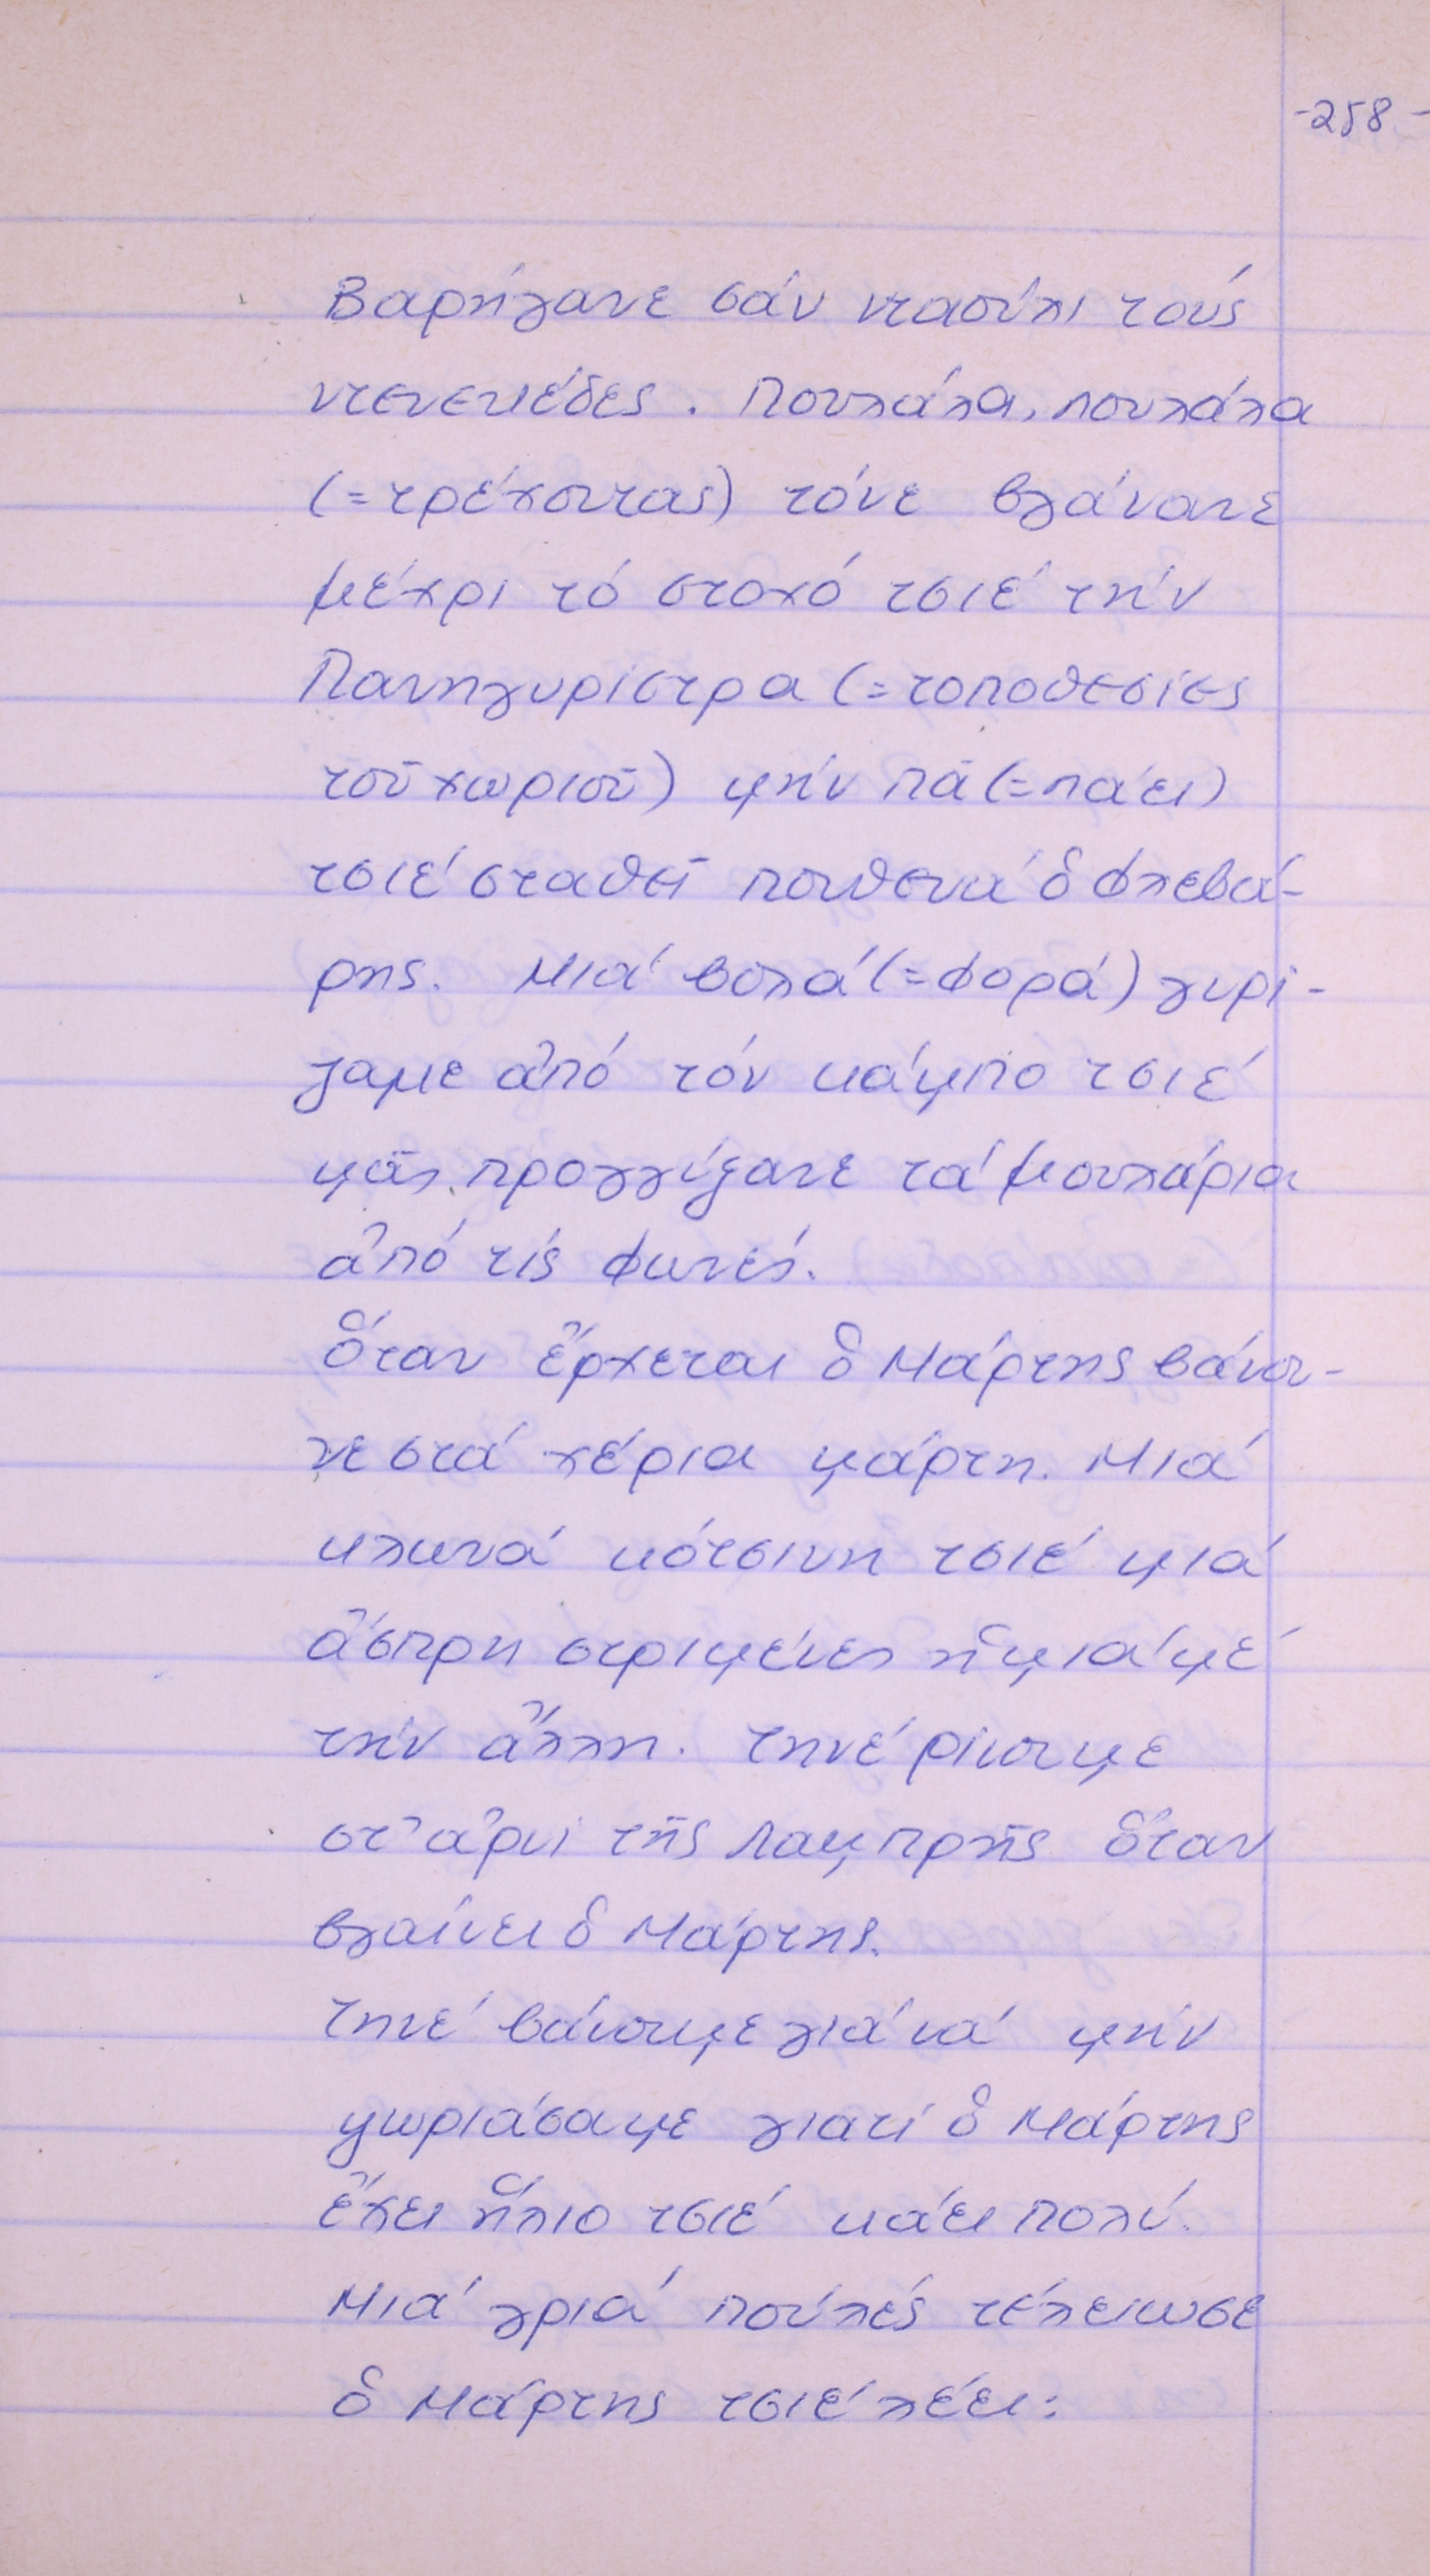 -258-
Βαρήγανε σάν νταούλι τούς
ντενεκέδες. Πουλάλα, πουλάλα
(=τρέχοντας) τόνε βγάνανε
μέχρι τό στοχό τσιέ τήν
Πανηγυρίστρα (=τοποθεσίες
τοῦ χωριοῦ) μήν πᾶ (=πάει)
τσιέ σταθεῖ πουθενά ὁ Φλεβά-
ρης. Μιά βολά (=φορά) γυρί-
ζαμε ἀπό τόν κάμπο τσιέ
μᾶς προγγίξανε τά μουλάρια
ἀπό τίς φωνές.
Ὅταν ἔρχεται ὁ Μάρτης βάνου-
νε στά χέρια μάρτη. Μιά
κλωνά κότσινη τσιέ μιά
ἄσπρη στριμένες ἡ μιά μέ
τήν ἄλλη. Τηνέ ρίνουμε
στ' ἀρνί τῆς Λαμπρῆς ὅταν
βγαίνει ὁ Μάρτης.
Τηνέ βάνουμε γιά νά μήν
μωριάσαμε γιατί ὁ Μάρτης
ἔχει ἥλιο τσιέ κάει πολύ.
Μιά γριά πούλές τέλειωσε
ὁ Μάρτης τσιέ λέει: